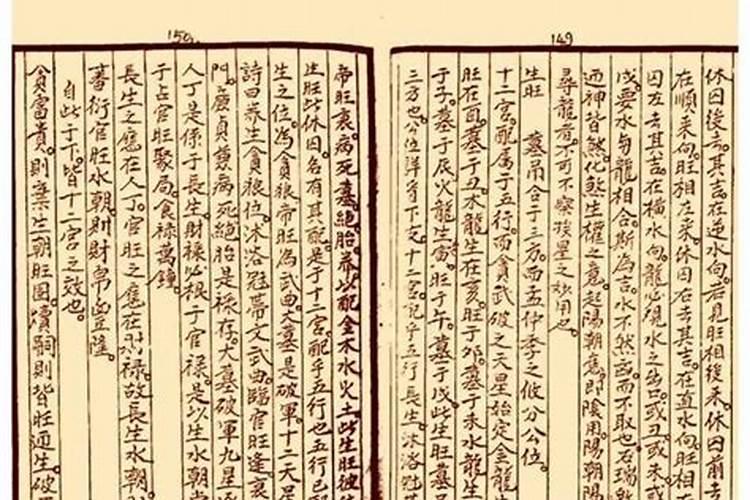 149
休囚後去其吉在逆水向若見旺相後来休囚前去
在順来向旺相左来休囚右去其吉在直水向旺相
囚左去其吉在橫水向龍必視水之出口或丑或未或
戌要水与龍相合斯為吉水不然凶而不取也右瑞
迺神皆煞化煞生權之意起陽朝意即陰用陽朝陽
尋龍者不可不察挨星之妙用也
生旺 墓吊合于三方而孟仲季之攸分公位
十二宮配属于五行而貪武破之天星始定金龍生
旺在酉墓于丑木龍生在亥旺于卯墓于未水龍生
于子墓于辰火龍生寅旺于午墓于戌此生旺墓
三方也公位詳寄下支十二宮配乎五行長生沐浴冠
150
帝旺衰病死墓絕胎养以配金木水火土此生旺彼
生旺此休囚各有其配是于十二宮配乎五行也五行已
生之位為貪狼帝旺為武曲大墓是破軍十二天
詩曰养生貪狼位沐浴冠帶文武曲臨官旺逢衰
門廉貞兼病死絕胎是祿存大墓破軍九星
人丁是係于長生財祿必根于官祿是以生水朝堂
于占官旺聚局食祿萬鍾
長生之應在人丁官旺之應在財祿故長生水朝
蕃衍官旺水朝則財帛豐隆
自此于下皆十二宮之效也
貪富貴則棄生朝旺圖續嗣則背旺迎生破